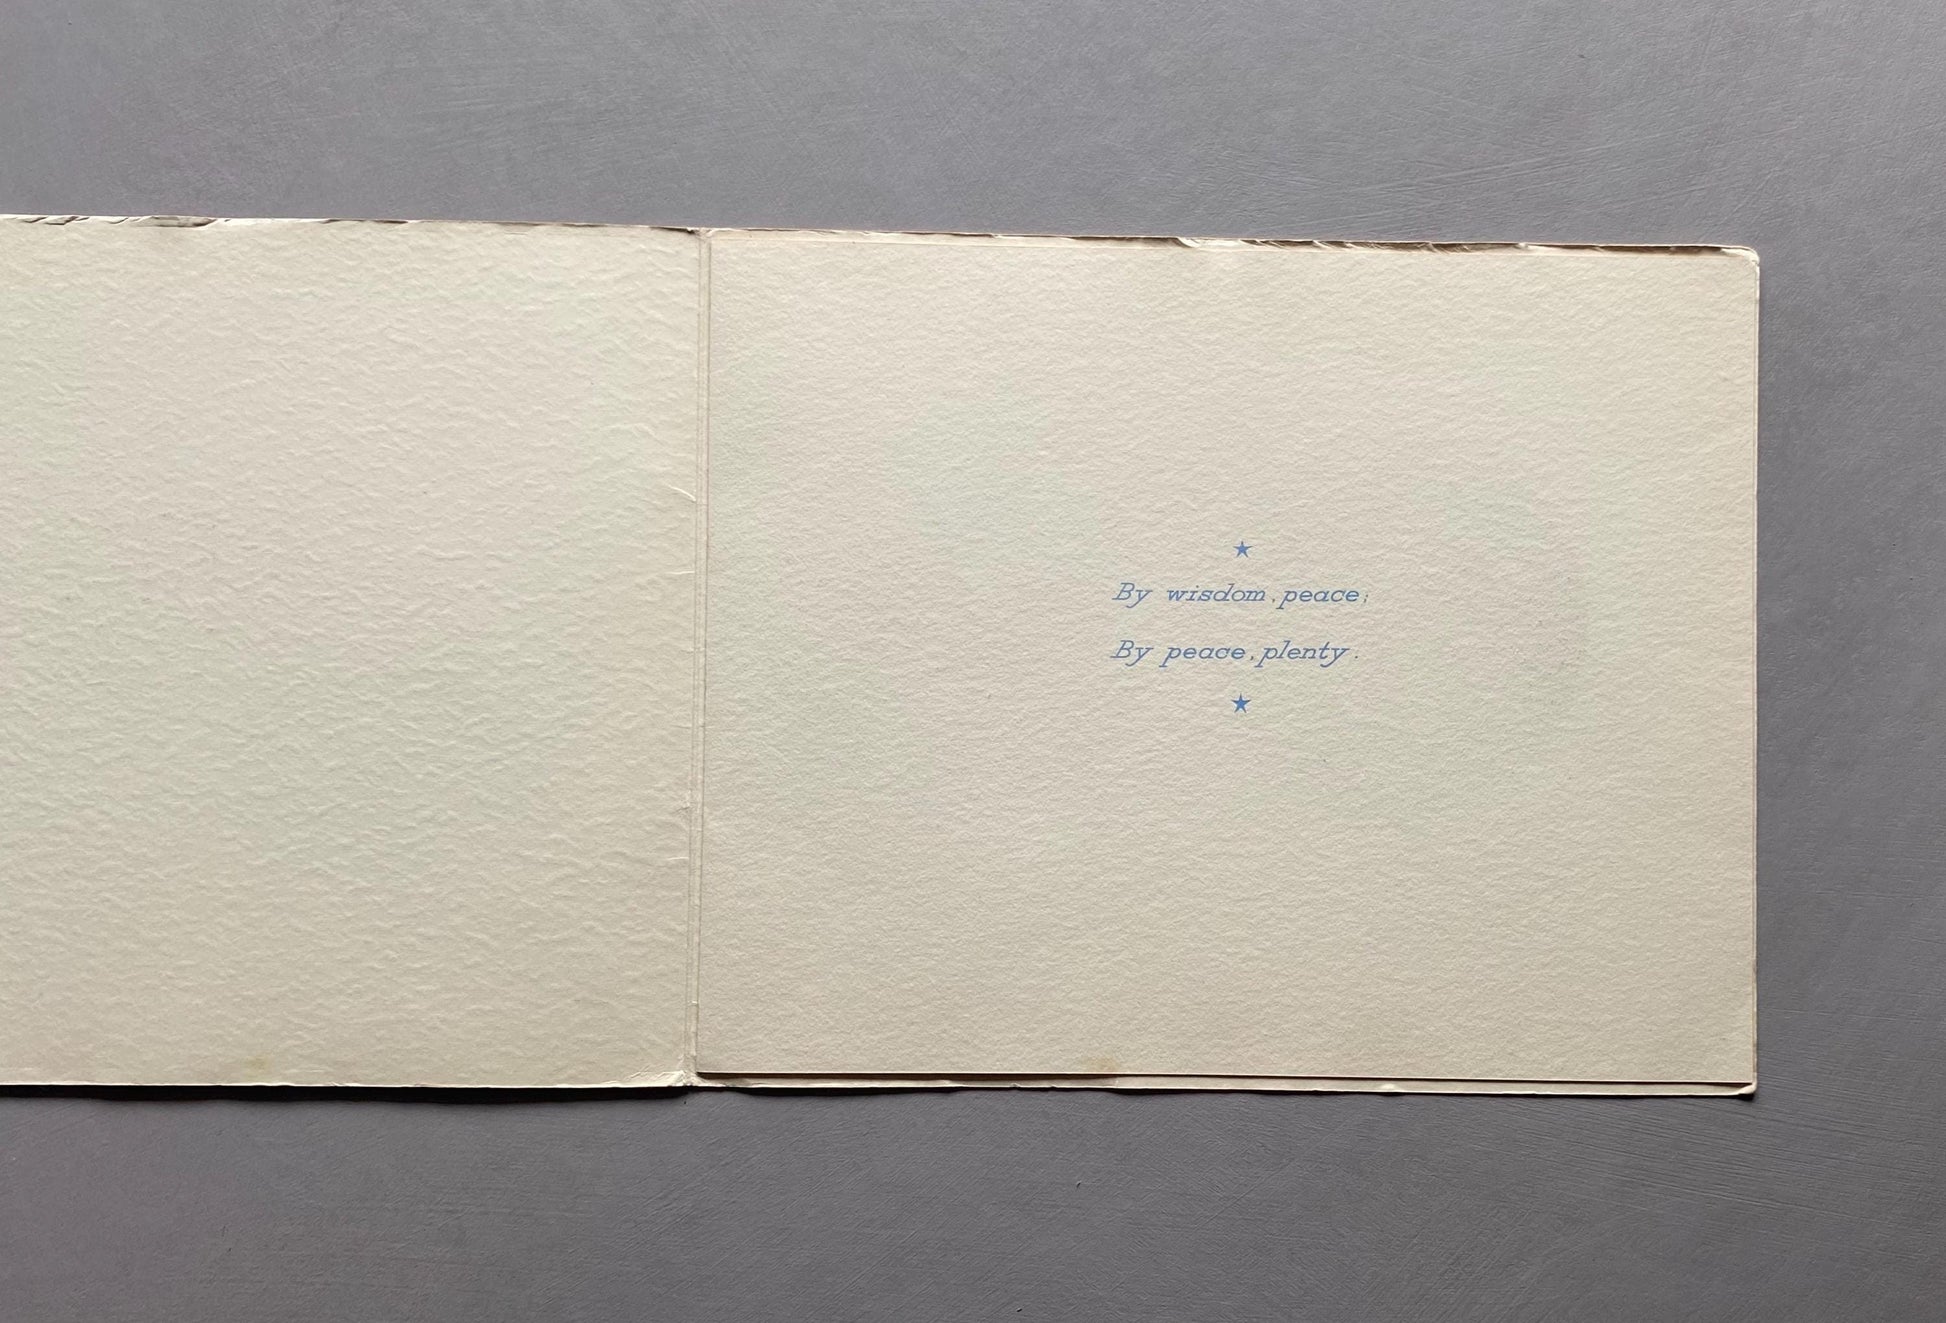 By wisdom, peace;
By peace, plenty.